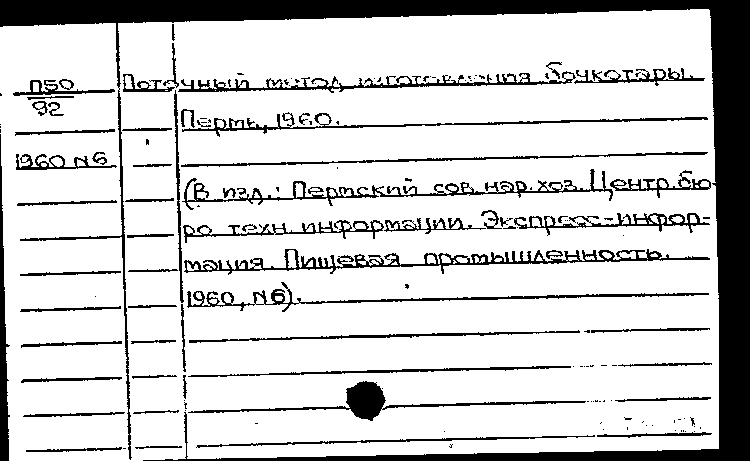 П50 Поточный метод изготовления бочкотары.
92 Пермь, 1960.
1960 N6
(В изд.: Пермский сов. нар. хоз. Центр. бю-
ро техн. информации. Экспресс-инфор-
мация. Пищевая промышленность.
1960, N6).